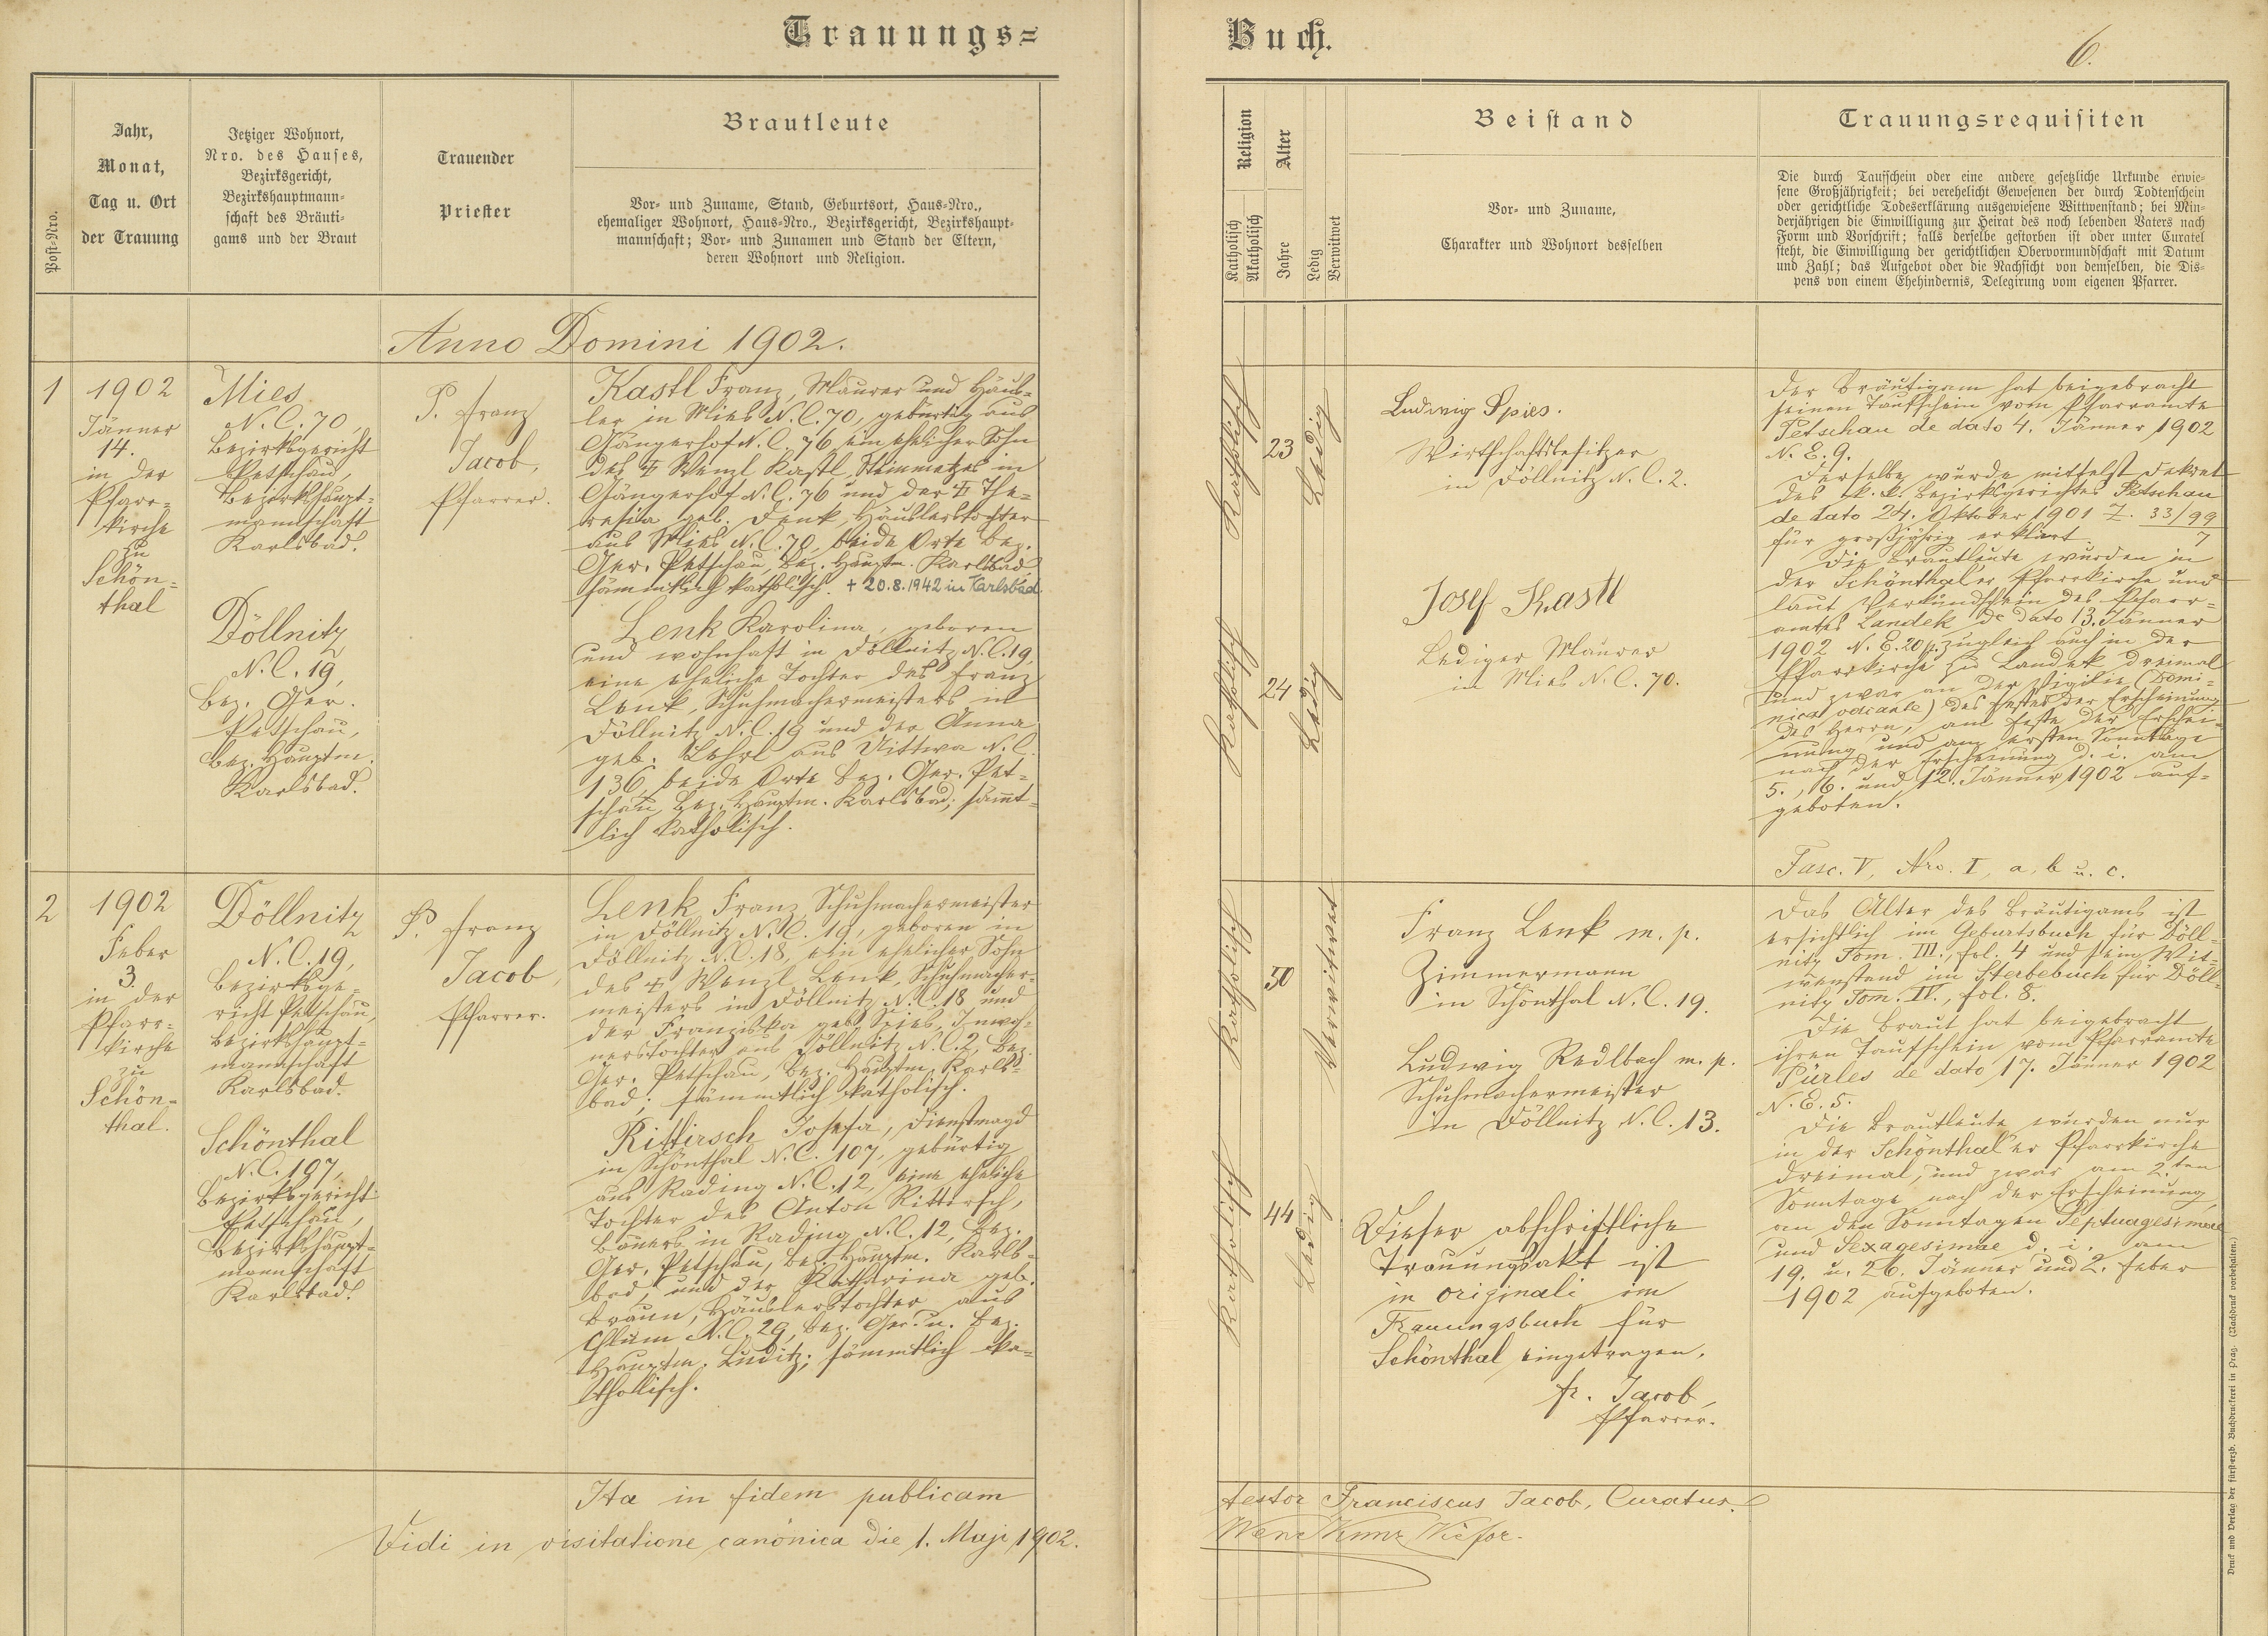 Trauungs=
Buch.
6.
Post-Nro.
Jahr,
Monat,
Tag u. Ort
der Trauung
Jetziger Wohnort,
Nro. des Hauses,
Bezirksgericht,
Bezirkshauptmann-
schaft des Bräuti-
gams und der Braut
Trauender
Priester
Brautleute
Vor- und Zuname, Stand, Geburtsort, Haus-Nro.,
ehemaliger Wohnort, Haus-Nro., Bezirksgericht, Bezirkshaupt-
mannschaft; Vor- und Zunamen und Stand der Eltern,
deren Wohnort und Religion.
Religion
Katholisch
Akatholisch
Alter
Jahre
Ledig
Verwitwet
Beistand
Vor- und Zuname,
Charakter und Wohnort desselben
Trauungsrequisiten
Die durch Taufschein oder eine andere gesetzliche Urkunde erwie-
sene Großjährigkeit; bei verehelicht Gewesenen der durch Todtenschein
oder gerichtliche Todeserklärung ausgewiesene Wittwenstand; bei Min-
derjährigen die Einwilligung zur Heirat des noch lebenden Vaters nach
Form und Vorschrift; falls derselbe gestorben ist oder unter Curatel
steht, die Einwilligung der gerichtlichen Obervormundschaft mit Datum
und Zahl; das Aufgebot oder die Nachsicht von demselben, die Dis-
pens von einem Ehehindernis, Delegirung vom eigenen Pfarrer.
Anno Domini 1902.
1
1902
Jänner
14.
in der
Pfarr-
kirche
zu
Schön-
thal
Mies
N. C. 70,
Bezirksgericht
Petschau,
Bezirkshaupt-
mannschaft
Karlsbad.
Döllnitz
N. C. 19,
Bez. Ger.
Petschau,
Bez. Hauptm.
Karlsbad.
P. Franz
Jacob,
Pfarrer.
Kastl Franz, Maurer und Häus-
ler in Mies N. C. 70, gebürtig aus
Gängerhof N. C. 76 ein ehelicher Sohn
des † Wenzl Kastl, Steinmetzes in
Gängerhof N. C. 76 und der † The-
resia geb. Denk, Häuslerstochter
aus Mies N. C. 70, beide Orte Bez.
Ger. Petschau, Bez. Hauptm. Karlsbad,
sämmtlich katholisch. + 20.8.1942 in Karlsbad.
Lenk Karolina, geboren
und wohnhaft in Döllnitz N. C. 19,
eine eheliche Tochter des Franz
Lenk, Schuhmachermeisters in
Döllnitz N. C. 19 und der Anna
geb. Lehrl aus Uittwa N. C.
136, beide Orte Bez. Ger. Pet-
schau, Bez. Hauptm. Karlsbad; sämmt-
lich katholisch.
Katholisch
23
Ledig
Katholisch
24
Ledig
Ludwig Spies.
Wirtschaftsbesitzer
in Döllnitz N. C. 2.
Josef Kastl
Lediger Maurer
in Mies N. C. 70.
Der Bräutigam hat beigebracht
seinen Taufschein vom Pfarramte
Petschau de dato 4. Jänner 1902
N. E. 9.
Derselbe wurde mittelst Dekret
des k. k. Bezirksgerichtes Petschau
de dato 24. Oktober 1901 Z. 33/99
7
für großjährig erklärt.
Die Brautleute wurden in
der Schönthal'er Pfarrkirche und
laut Verkündschein des Pfarr-
amtes Landek de dato 13. Jänner
1902 N. E. 20 p. zugleich auch in der
Pfarrkirche zu Landek dreimal
und zwar an der Vigilie (Domi-
nica vacante) des Festes der Erscheinung
des Herrn, am Feste der Erschei-
nung und am ersten Sonntage
nach der Erscheinung d. i. am
5., 6. und 12. Jänner 1902 auf-
geboten.
Fasc. V, Nro. I, a, b u. c.
2
1902
Feber
3.
in der
Pfarr-
kirche
zu
Schön-
thal.
Döllnitz
N. C. 19,
Bezirksge-
richt Petschau,
Bezirkshaupt-
mannschaft
Karlsbad.
Schönthal
N. C. 107,
Bezirksgericht
Petschau,
Bezirkshaupt-
mannschaft
Karlsbad.
P. Franz
Jacob,
Pfarrer.
Lenk Franz, Schuhmachermeister
in Döllnitz N. C. 19, geboren in
Döllnitz N. C. 18, ein ehelicher Sohn
des † Wenzl Lenk, Schuhmacher-
meisters in Döllnitz N. C. 18 und
der Franziska geb. Spies, Inwoh-
nerstochter aus Döllnitz N. C. 2, Bez.
Ger. Petschau, Bez. Hauptm. Karls-
bad; sämmtlich katholisch.
Rittirsch Josefa, Dienstmagd
in Schönthal N. C. 107, gebürtig
aus Rading N. C. 12, eine eheliche
Tochter des Anton Rittirsch,
Bauers in Rading N. C. 12, Bez.
Ger. Petschau, Bez. Hauptm. Karls-
bad, und der Katharina geb.
Braun, Häuslerstochter aus
Chlum N. C. 29, Bez. Ger. u. Bez.
Hauptm. Luditz; sämmtlich ka-
tholisch.
Katholisch
50
Verwitwet
Katholisch
44
Ledig
Franz Lenk m. p.
Zimmermann
in Schönthal N. C. 19.
Ludwig Redlbach m. p.
Schuhmachermeister
in Döllnitz N. C. 13.
Dieser abschriftliche
Trauungsakt ist
in originali im
Trauungsbuch für
Schönthal eingetragen.
fr. Jacob,
Pfarrer.
Das Alter des Bräutigams ist
ersichtlich im Geburtsbuch für Döll-
nitz Tom. III., fol. 4 und sein Wit-
wenstand im Sterbebuch für Döll-
nitz Tom. IV., fol. 8.
Die Braut hat beigebracht
ihren Taufschein vom Pfarramte
Pürles de dato 17. Jänner 1902
N. E. 5.
Die Brautleute wurden nur
in der Schönthal'er Pfarrkirche
dreimal, und zwar am 2.ten
Sonntage nach der Erscheinung,
an den Sonntagen Septuagesimae
und Sexagesimae d. i. am
19. u. 26. Jänner und 2. Feber
1902 aufgeboten.
Ita in fidem publicam
testor Franciscus Jacob, Curatus.
Vidi in visitatione canonica die 1. Maji 1902.
Druck und Verlag der fürsterzb. Buchdruckerei in Prag. (Nachdruck vorbehalten.)